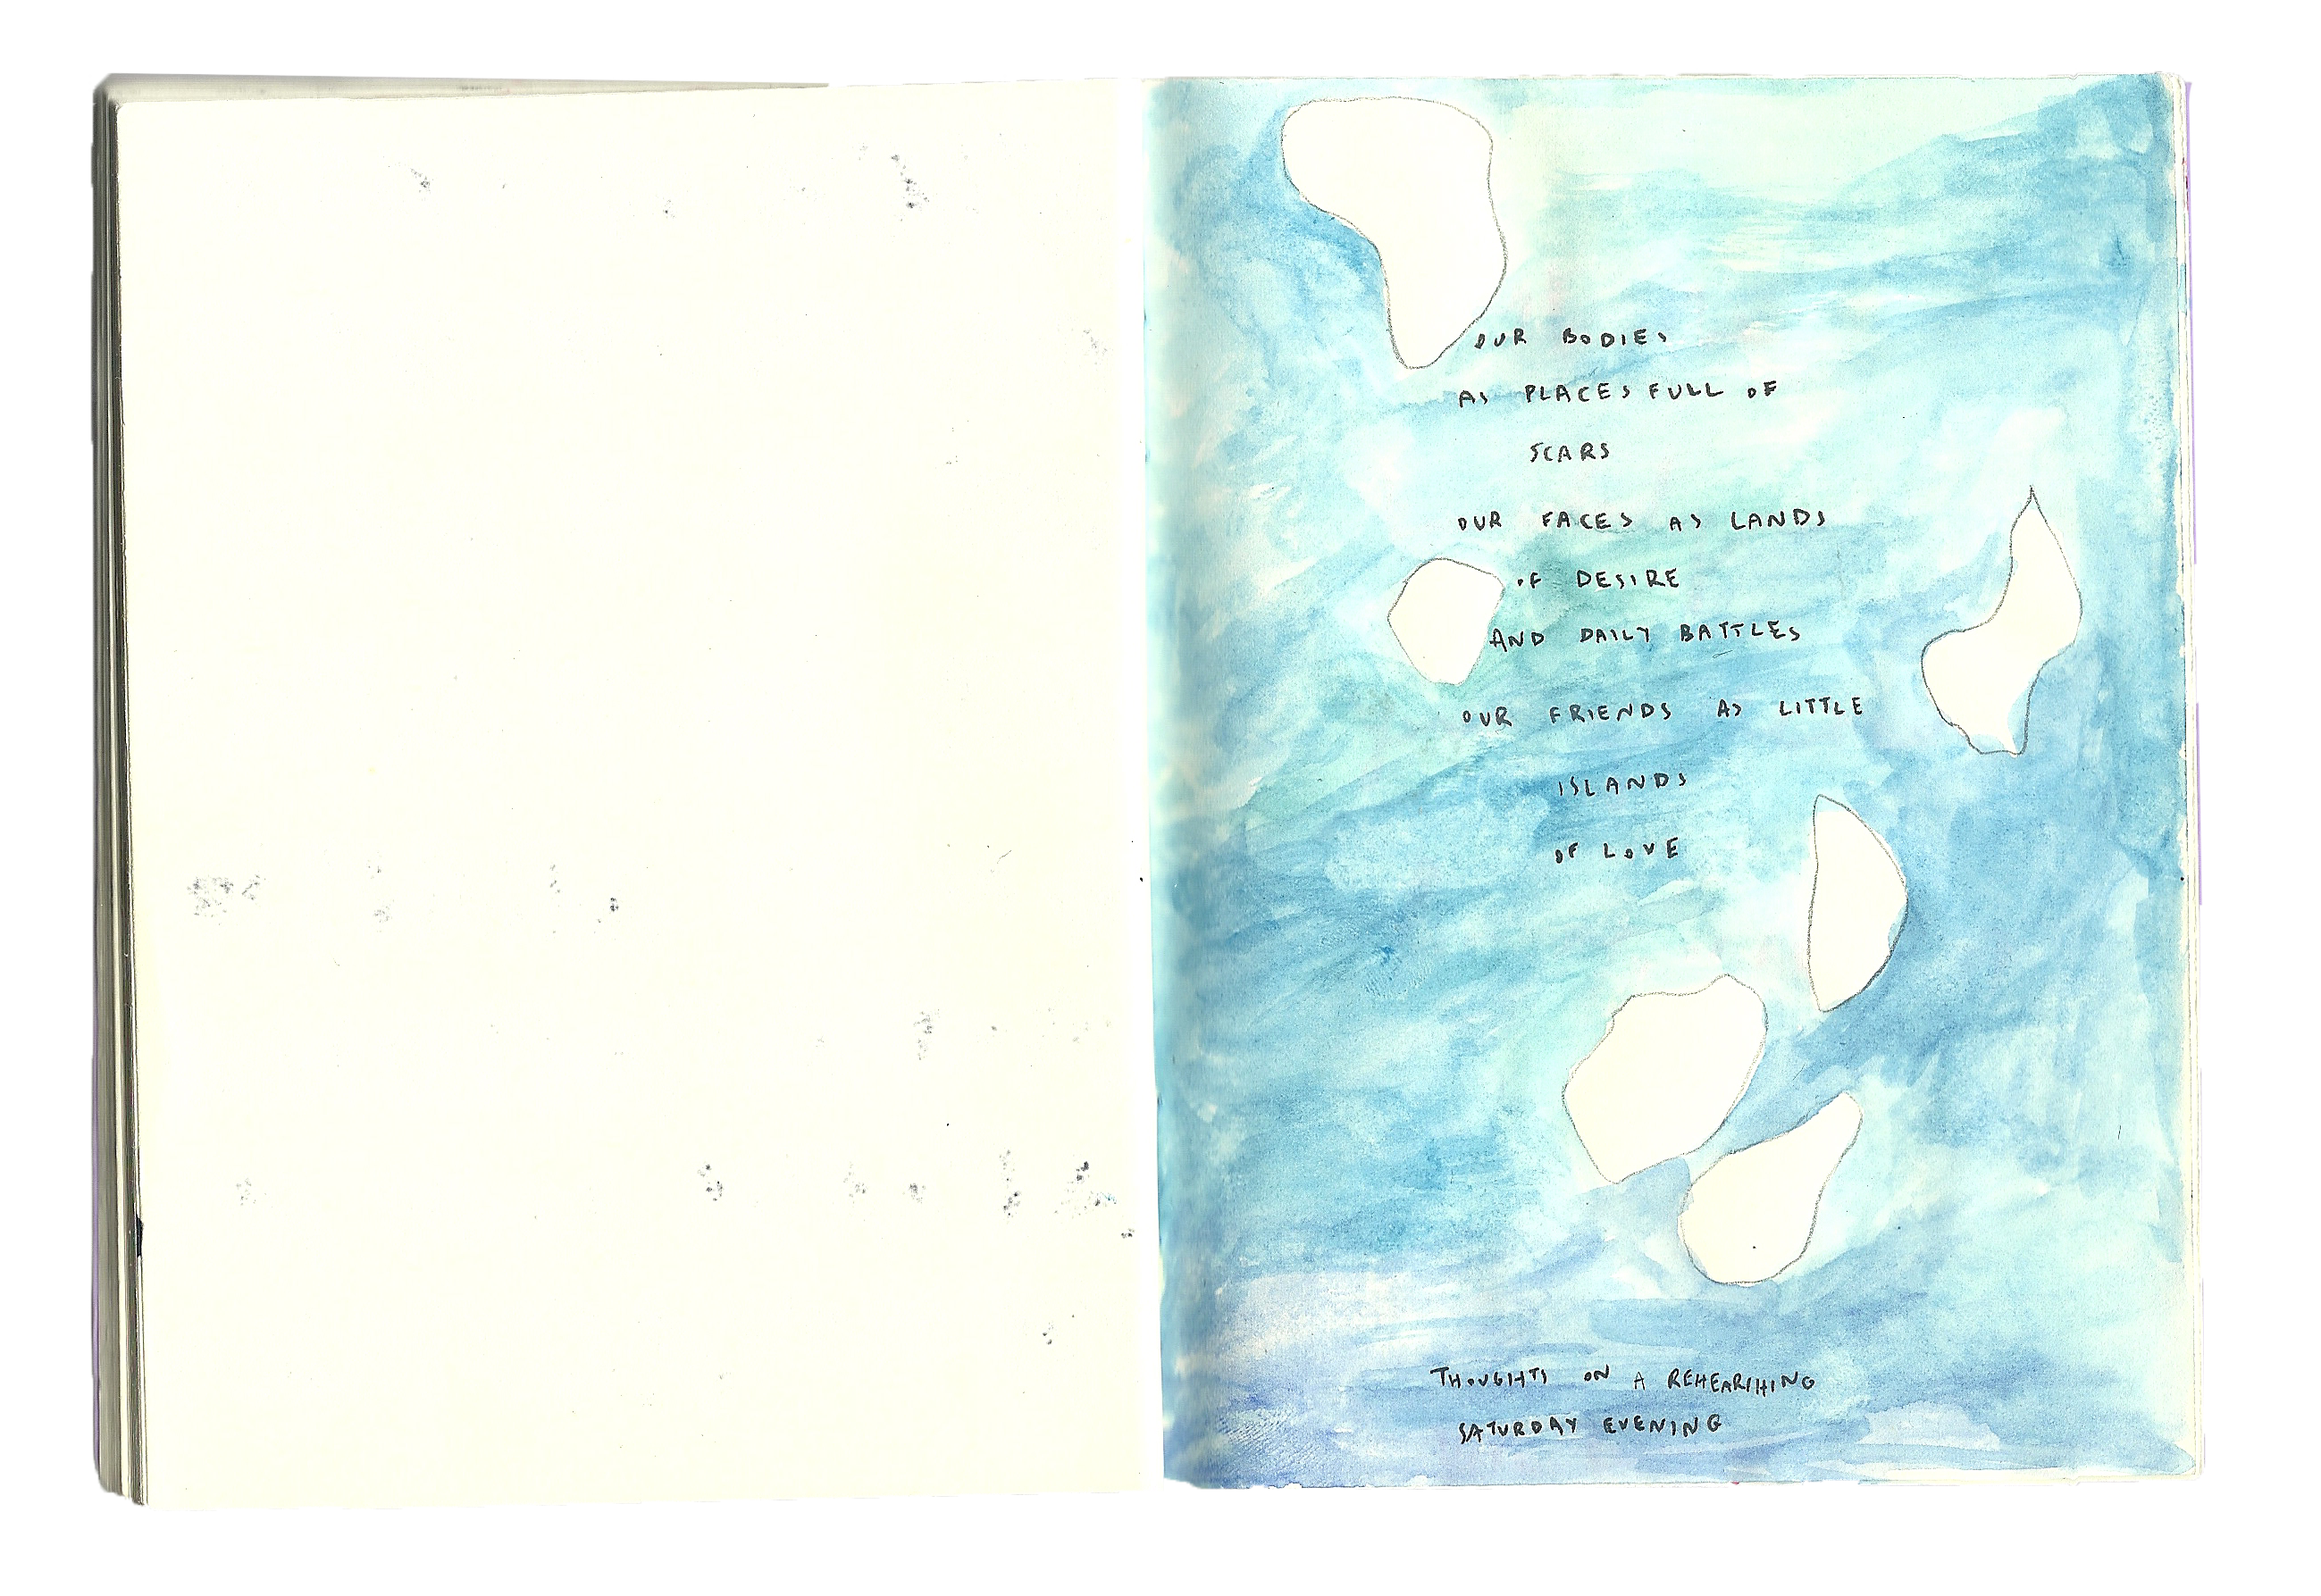 OUR BODIES
AS PLACES FULL OF
SCARS
OUR FACES AS LANDS
OF DESIRE
AND DAILY BATTLES
OUR FRIENDS AS LITTLE
ISLANDS
OF LOVE
THOUGHTS ON A REHEARSHING
SATURDAY EVENING